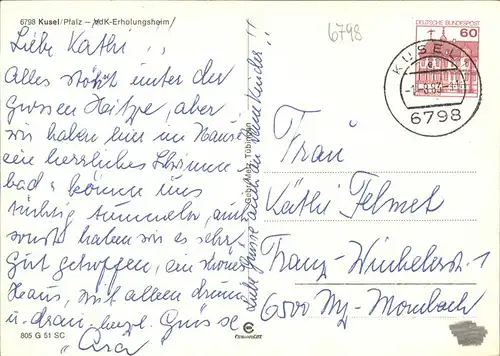 6798 Kusel/Pfalz – VdK-Erholungsheim
6798
Liebe Kathi!
Alles stöhnt unter der
Grossen Hitze, aber
wir haben hier im Haus
ein herrliches Schwimm-
bad u können uns
richtig tummeln, auch
sonst haben wir es sehr
gut getroffen, ein schönes
Haus, mit allem drum
u. dran herzl. Grüsse
Liebe Grüsse auch an deine Kinder!!
805 G 51 SC
Gebr. Metz, Tübingen
COPYRIGHT
DEUTSCHE BUNDESPOST
60
KUSEL 1
6798
Frau
Käthi Felmet
Franz-Winkeler-Str. 1
6500 Mz-Mombach